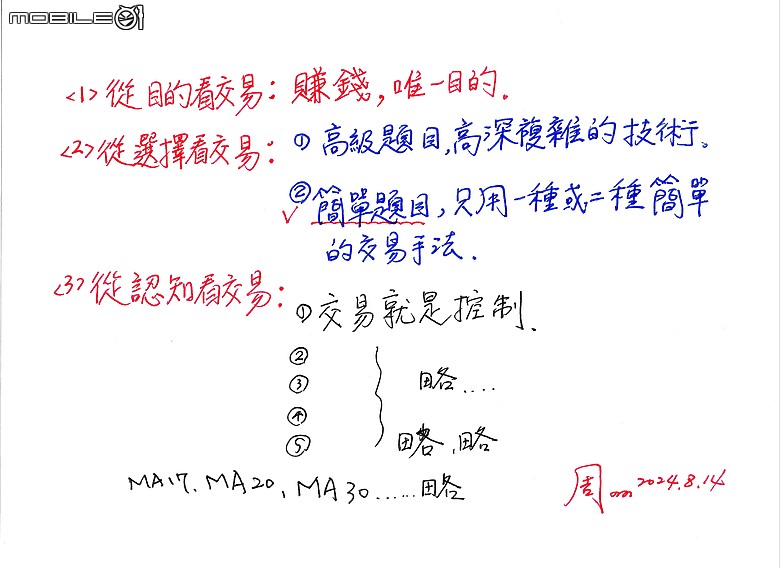 MOBILE01
<1>從目的看交易：賺錢，唯一目的.
<2>從選擇看交易：① 高級題目，高深複雜的技術行。
② 簡單題目，只用一種或二種簡單
的交易手法.
<3>從認知看交易：
① 交易就是控制.
②
③ 略....
④
⑤ 略，略
MA17. MA20, MA30......略
周 2024.8.14